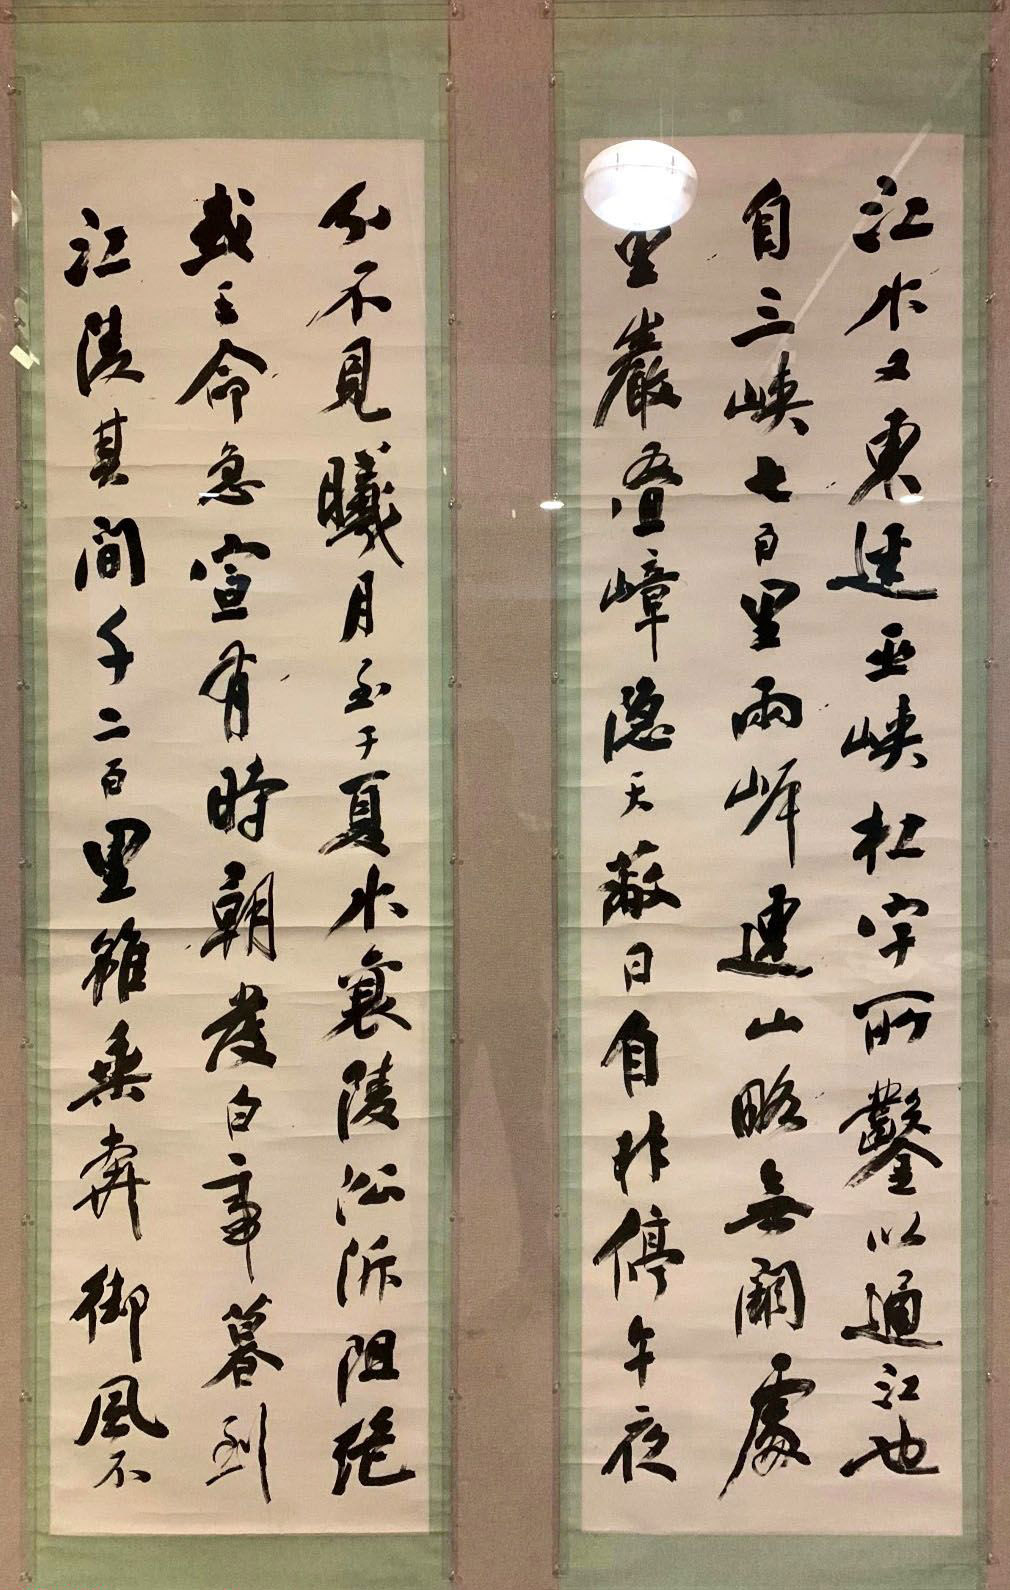 江水又東逕巫峽杜宇所鑿以通江也
自三峽七百里兩岸連山略無闕處
重巖疊嶂隱天蔽日自非停午夜
分不見曦月至于夏水襄陵沿泝阻絕
或王命急宣有時朝發白帝暮到
江陵其間千二百里雖乘奔御風不